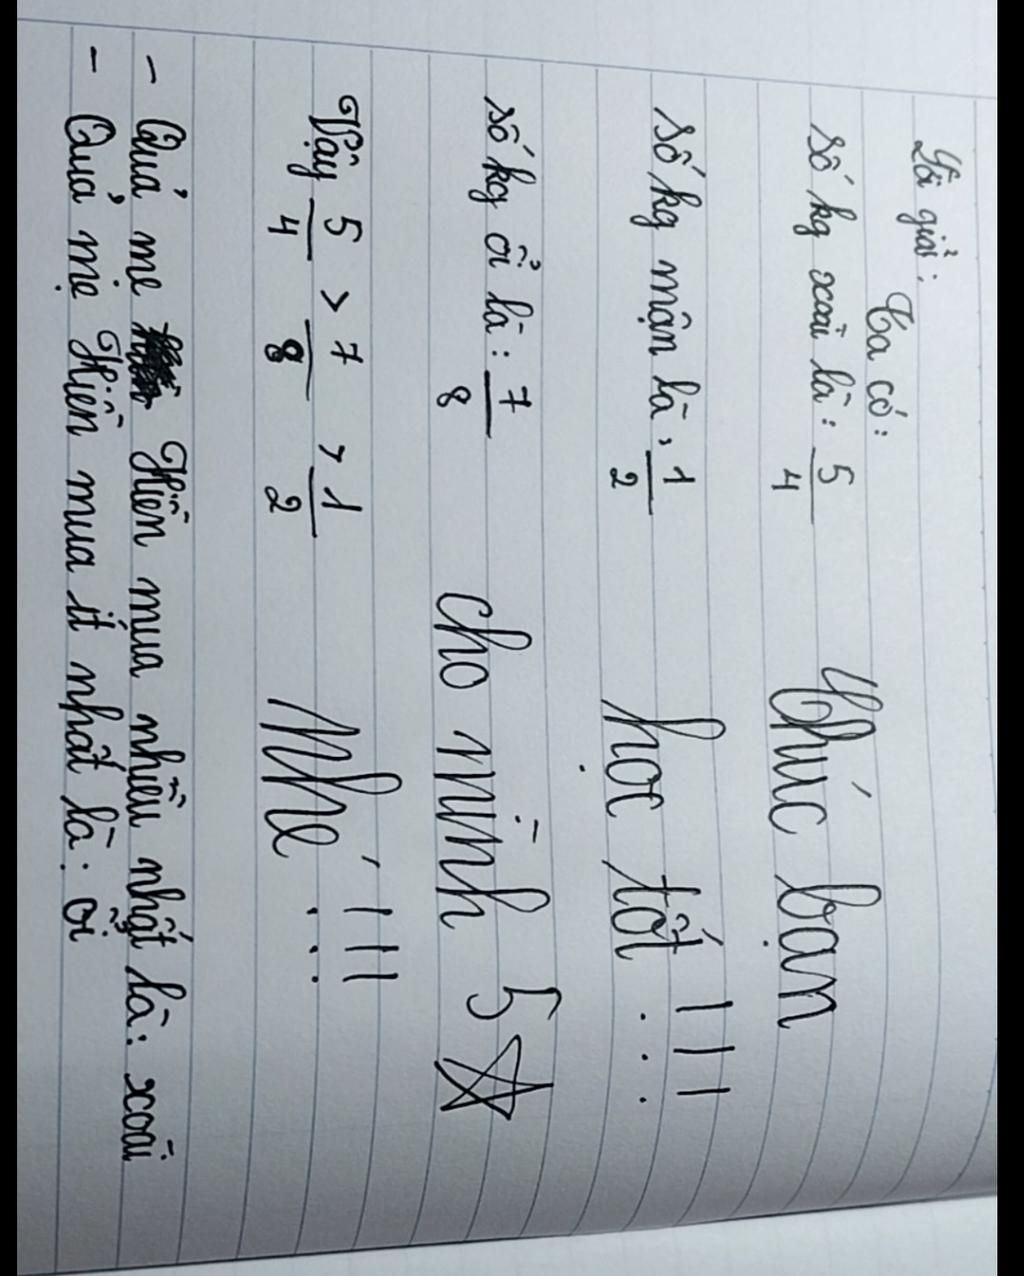 Lời giải:
Ta có:
số kg xoài là: 5/4
Chúc bạn
số kg mận là: 1/2
học tốt !!!
số kg ổi là: 7/8
cho mình 5 ☆
Vậy 5/4 > 7/8 > 1/2
Nhé !!!
- Quả mẹ Hiền mua nhiều nhất là: xoài
- Quả mẹ Hiền mua ít nhất là: ổi